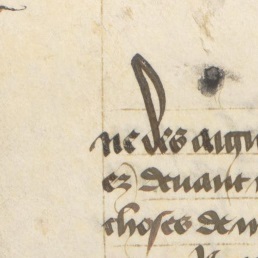 ne des aigu
ez deuant
choses de m